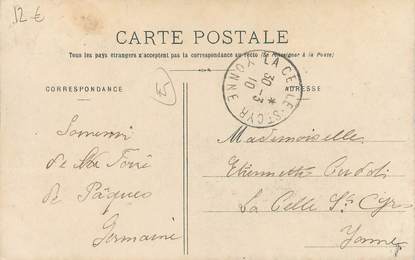 12 €
CARTE POSTALE
Tous les pays étrangers n'acceptent pas la correspondance au recto (Se renseigner à la Poste)
CORRESPONDANCE
ADRESSE
LA CELLE-ST-CYR YONNE
30 -3
10
Souvenir
de
de Pâques
Germaine
Mademoiselle
La Celle St Cyr
Yonne